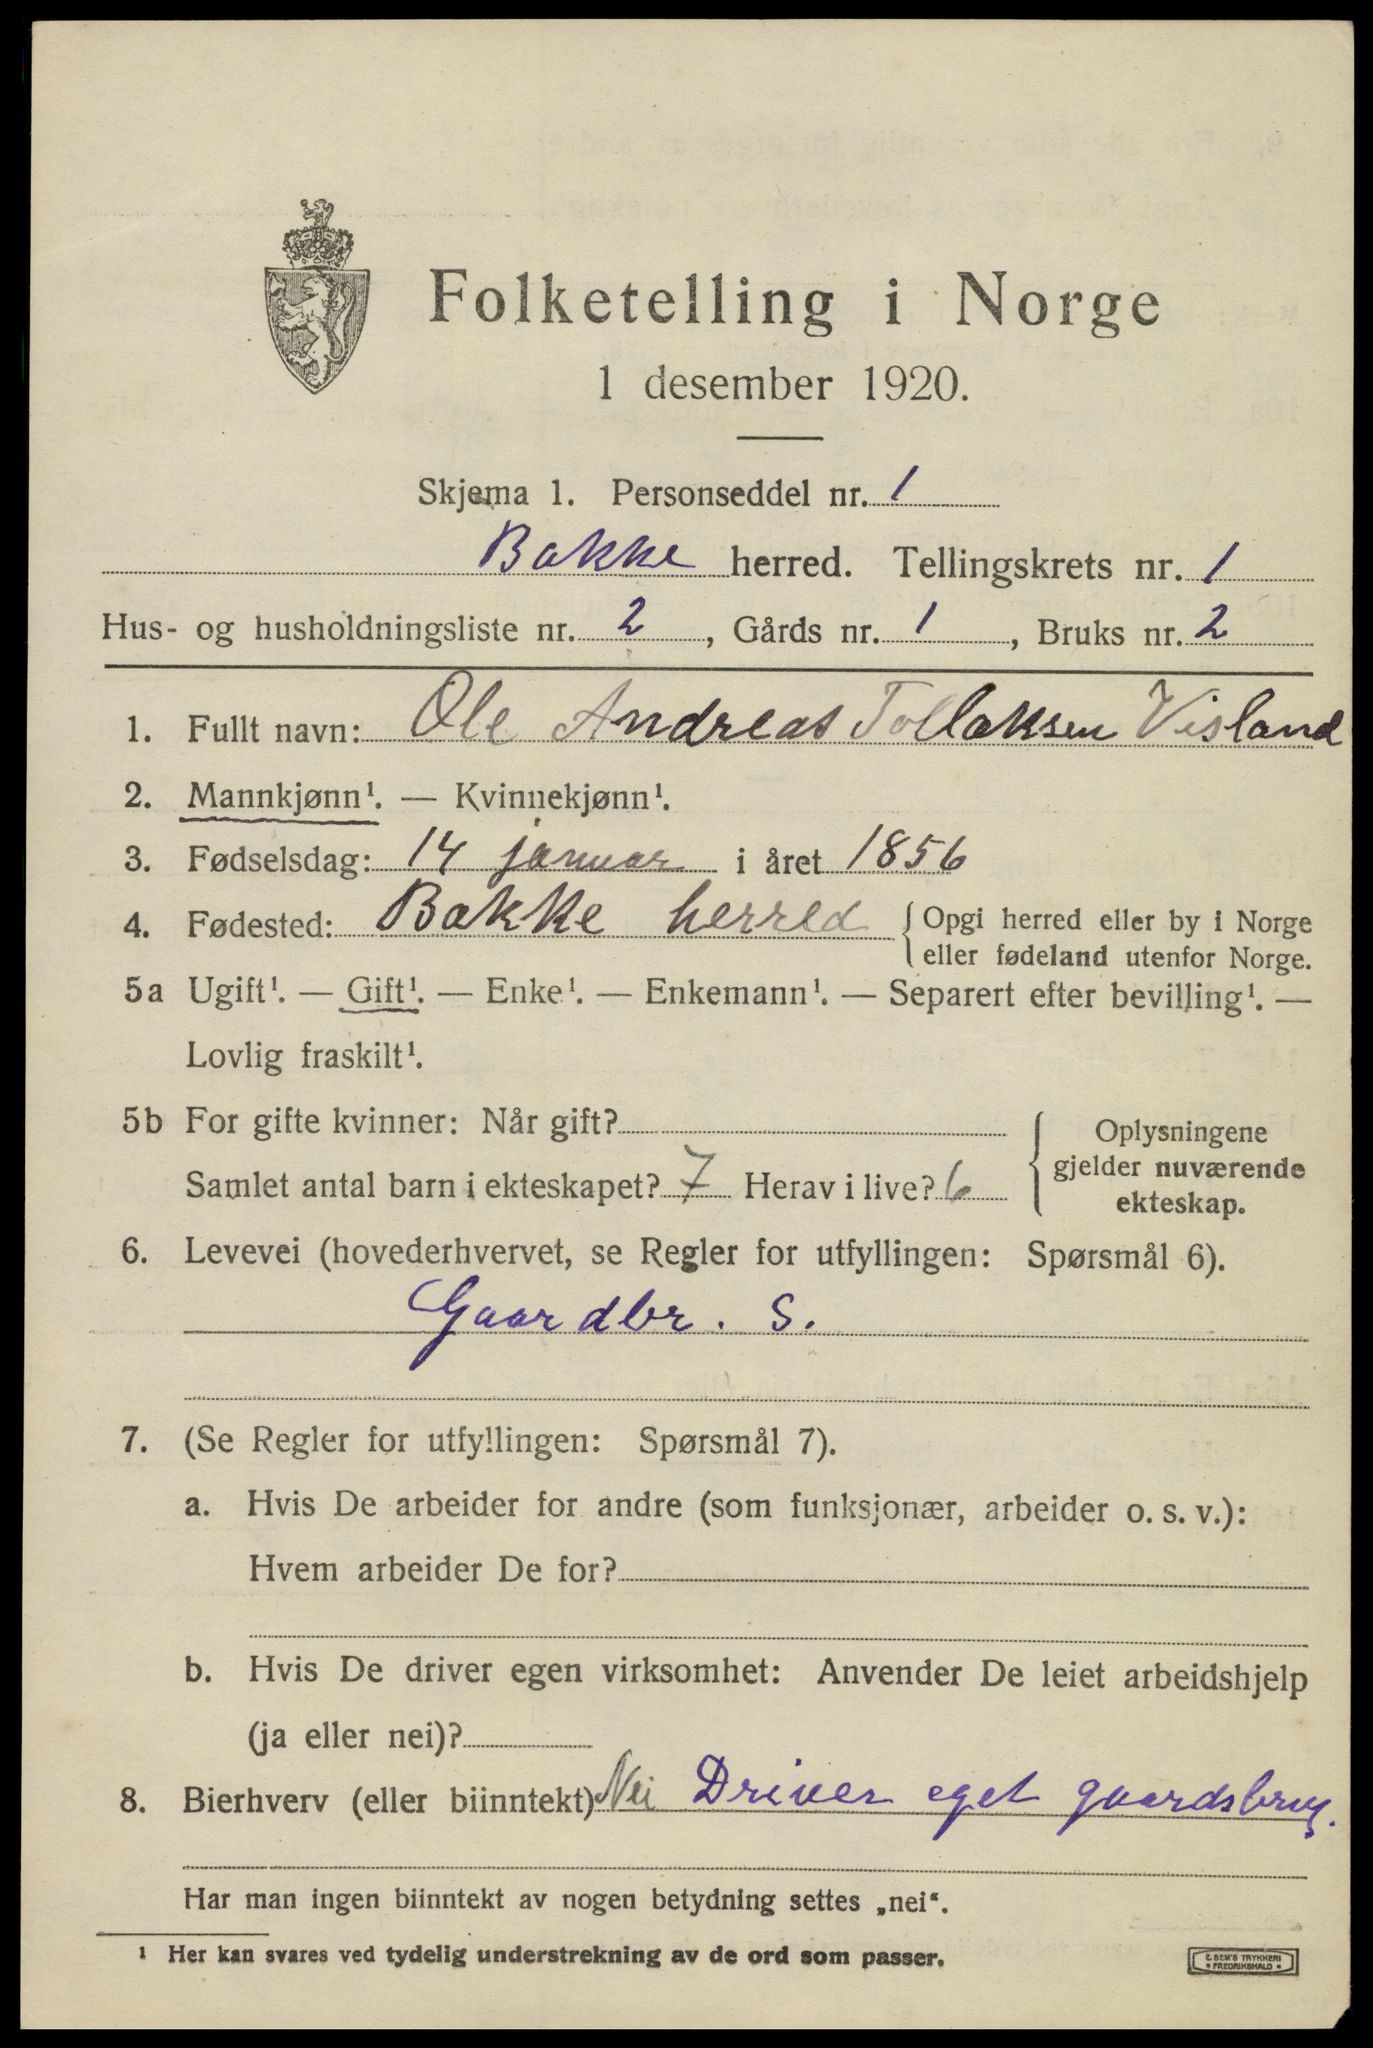 Folketelling i Norge
1 desember 1920.
Skjema 1. Personseddel nr. 1
Bakke herred. Tellingskrets nr. 1
Hus- og husholdningsliste nr. 2, Gårds nr. 1, Bruks nr. 2
1. Fullt navn: Ole Andreas Tollaksen Visland
2. Mannkjønn¹. — Kvinnekjønn¹.
3. Fødselsdag: 14 januar i året 1856
4. Fødested: Bakke herred { Opgi herred eller by i Norge
eller fødeland utenfor Norge.
5a Ugift¹. — Gift¹. — Enke¹. — Enkemann¹. — Separert efter bevilling¹. —
Lovlig fraskilt¹.
5b For gifte kvinner: Når gift?
Samlet antal barn i ekteskapet? 7 Herav i live? 6
Oplysningene
gjelder nuværende
ekteskap.
6. Levevei (hovederhvervet, se Regler for utfyllingen: Spørsmål 6).
Gaardbr. S.
7. (Se Regler for utfyllingen: Spørsmål 7).
a. Hvis De arbeider for andre (som funksjonær, arbeider o. s. v.):
Hvem arbeider De for?
b. Hvis De driver egen virksomhet: Anvender De leiet arbeidshjelp
(ja eller nei)?
8. Bierhverv (eller biinntekt) Nei Driver eget gaardsbrug.
Har man ingen biinntekt av nogen betydning settes „nei“.
¹ Her kan svares ved tydelig understrekning av de ord som passer.
E. SEM'S TRYKKERI
FREDRIKSHALD